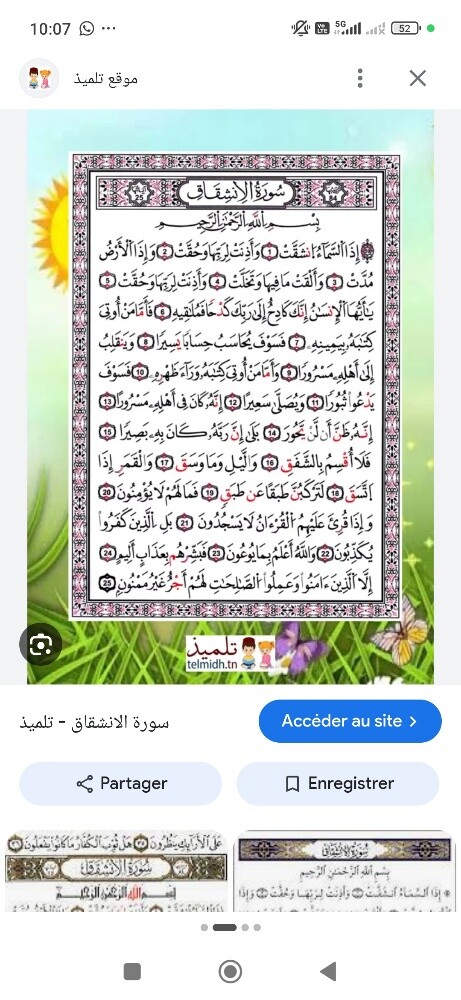 10:07
5G
52
موقع تلميذ
سُورَةُ الِانشِقَاقِ
بِسْمِ اللَّهِ الرَّحْمَٰنِ الرَّحِيمِ
إِذَا السَّمَاءُ انشَقَّتْ 1 وَأَذِنَتْ لِرَبِّهَا وَحُقَّتْ 2 وَإِذَا الْأَرْضُ
مُدَّتْ 3 وَأَلْقَتْ مَا فِيهَا وَتَخَلَّتْ 4 وَأَذِنَتْ لِرَبِّهَا وَحُقَّتْ 5
يَا أَيُّهَا الْإِنسَانُ إِنَّكَ كَادِحٌ إِلَىٰ رَبِّكَ كَدْحًا فَمُلَاقِيهِ 6 فَأَمَّا مَنْ أُوتِيَ
كِتَابَهُ بِيَمِينِهِ 7 فَسَوْفَ يُحَاسَبُ حِسَابًا يَسِيرًا 8 وَيَنقَلِبُ
إِلَىٰ أَهْلِهِ مَسْرُورًا 9 وَأَمَّا مَنْ أُوتِيَ كِتَابَهُ وَرَاءَ ظَهْرِهِ 10 فَسَوْفَ
يَدْعُوا ثُبُورًا 11 وَيَصْلَىٰ سَعِيرًا 12 إِنَّهُ كَانَ فِي أَهْلِهِ مَسْرُورًا 13
إِنَّهُ ظَنَّ أَن لَّن يَحُورَ 14 بَلَىٰ إِنَّ رَبَّهُ كَانَ بِهِ بَصِيرًا 15
فَلَا أُقْسِمُ بِالشَّفَقِ 16 وَاللَّيْلِ وَمَا وَسَقَ 17 وَالْقَمَرِ إِذَا
اتَّسَقَ 18 لَتَرْكَبُنَّ طَبَقًا عَن طَبَقٍ 19 فَمَا لَهُمْ لَا يُؤْمِنُونَ 20
وَإِذَا قُرِئَ عَلَيْهِمُ الْقُرْءَانُ لَا يَسْجُدُونَ 21 بَلِ الَّذِينَ كَفَرُوا
يُكَذِّبُونَ 22 وَاللَّهُ أَعْلَمُ بِمَا يُوعُونَ 23 فَبَشِّرْهُم بِعَذَابٍ أَلِيمٍ 24
إِلَّا الَّذِينَ ءَامَنُوا وَعَمِلُوا الصَّالِحَاتِ لَهُمْ أَجْرٌ غَيْرُ مَمْنُونٍ 25
تلميذ
telmidh.tn
سورة الانشقاق - تلميذ
Accéder au site
Partager
Enregistrer
عَلَى الْأَرَائِكِ يَنظُرُونَ هَلْ ثُوِّبَ الْكُفَّارُ مَا كَانُوا يَفْعَلُونَ
سُورَةُ الِانشِقَاقِ
بِسْمِ اللَّهِ الرَّحْمَٰنِ الرَّحِيمِ
سُورَةُ الِانشِقَاقِ
بِسْمِ اللَّهِ الرَّحْمَٰنِ الرَّحِيمِ
إِذَا السَّمَاءُ انشَقَّتْ وَأَذِنَتْ لِرَبِّهَا وَحُقَّتْ وَإِذَا